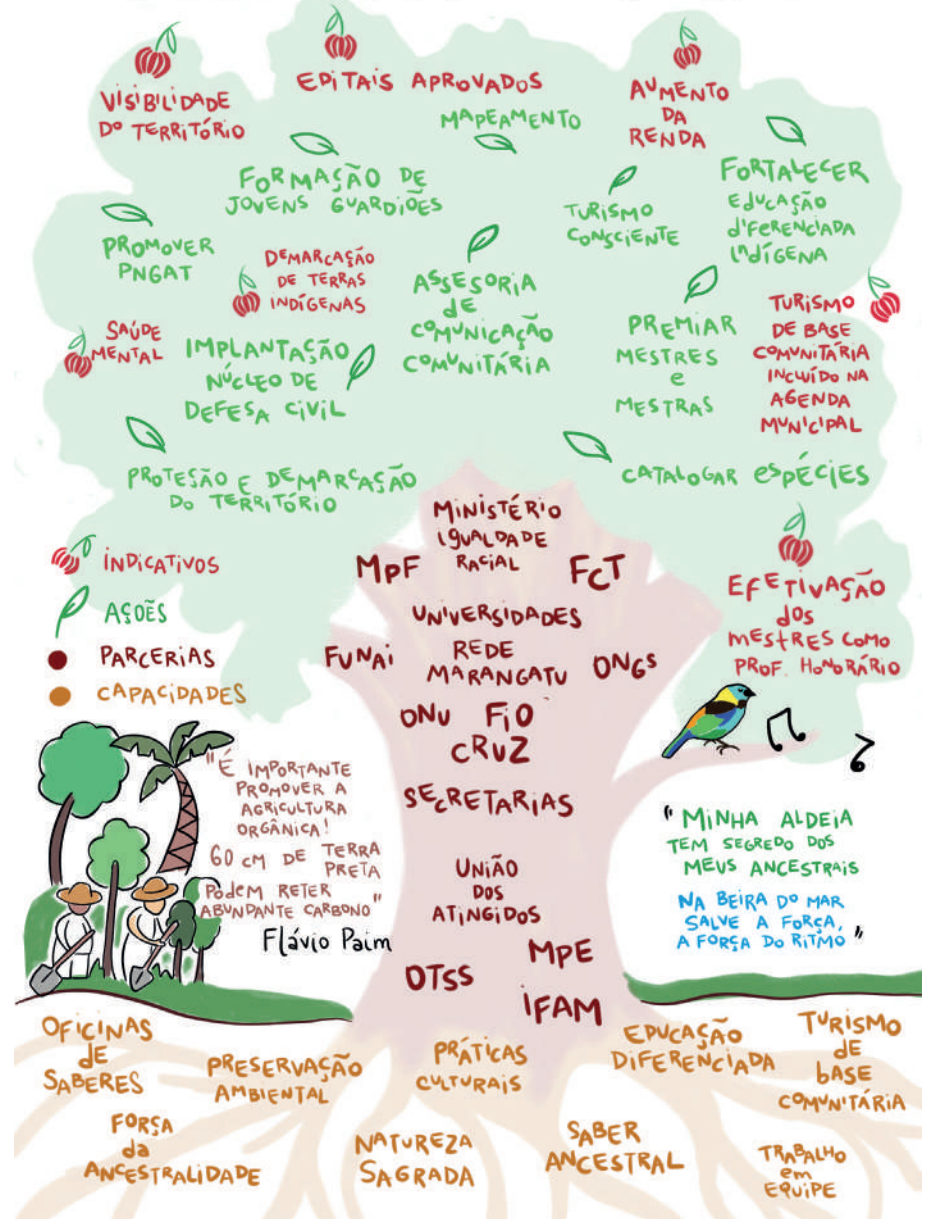 VISIBILIDADE
DO TERRITÓRIO
EDITAIS APROVADOS
MAPEAMENTO
AUMENTO
DA
RENDA
FORMAÇÃO DE
JOVENS GUARDIÕES
TURISMO
CONSCIENTE
FORTALECER
EDUCAÇÃO
DIFERENCIADA
INDÍGENA
PROMOVER
PNGAT
DEMARCAÇÃO
DE TERRAS
INDÍGENAS
ASSESORIA
de
COMUNICAÇÃO
COMUNITÁRIA
SAÚDE
MENTAL
IMPLANTAÇÃO
NÚCLEO DE
DEFESA CIVIL
PREMIAR
MESTRES
e
MESTRAS
TURISMO
DE BASE
COMUNITÁRIA
INCLUÍDO NA
AGENDA
MUNICIPAL
PROTEÇÃO E DEMARCAÇÃO
DO TERRITÓRIO
CATALOGAR ESPÉCIES
INDICATIVOS
AÇÕES
PARCERIAS
CAPACIDADES
MINISTÉRIO
IGUALDADE
RACIAL
MPF
FCT
UNIVERSIDADES
FUNAI
REDE
MARANGATU
ONGS
ONU
FIO
CRUZ
SECRETARIAS
UNIÃO
DOS
ATINGIDOS
MPE
OTSS
IFAM
EFETIVAÇÃO
dos
MESTRES COMO
PROF. HONORÁRIO
"É IMPORTANTE
PROMOVER A
AGRICULTURA
ORGÂNICA!
60 CM DE TERRA
PRETA
PODEM RETER
ABUNDANTE CARBONO"
Flávio Paim
"MINHA ALDEIA
TEM SEGREDO DOS
MEUS ANCESTRAIS
NA BEIRA DO MAR
SALVE A FORÇA,
A FORÇA DO RITMO"
OFICINAS
DE
SABERES
PRESERVAÇÃO
AMBIENTAL
PRÁTICAS
CULTURAIS
EDUCAÇÃO
DIFERENCIADA
TURISMO
DE
BASE
COMUNITÁRIA
FORÇA
da
ANCESTRALIDADE
NATUREZA
SAGRADA
SABER
ANCESTRAL
TRABALHO
em
EQUIPE